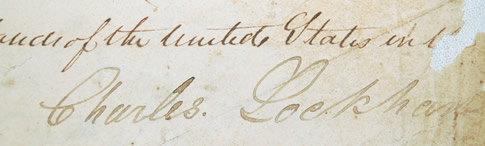 of the United States in
Charles. Lockhart